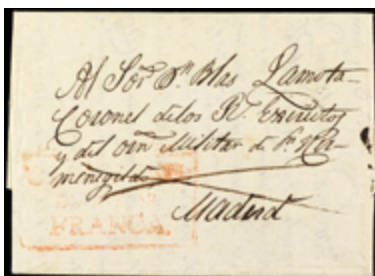 Al Sor. Dn. Blas Lamota
Coronel delos Rs. Exercitos
y del orn. Militar de Sn. Her-
menegildo
Madrid
FRANCA.